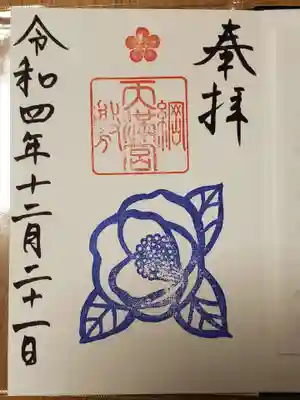 奉拝
綱敷天満宮
令和四年十二月二十一日